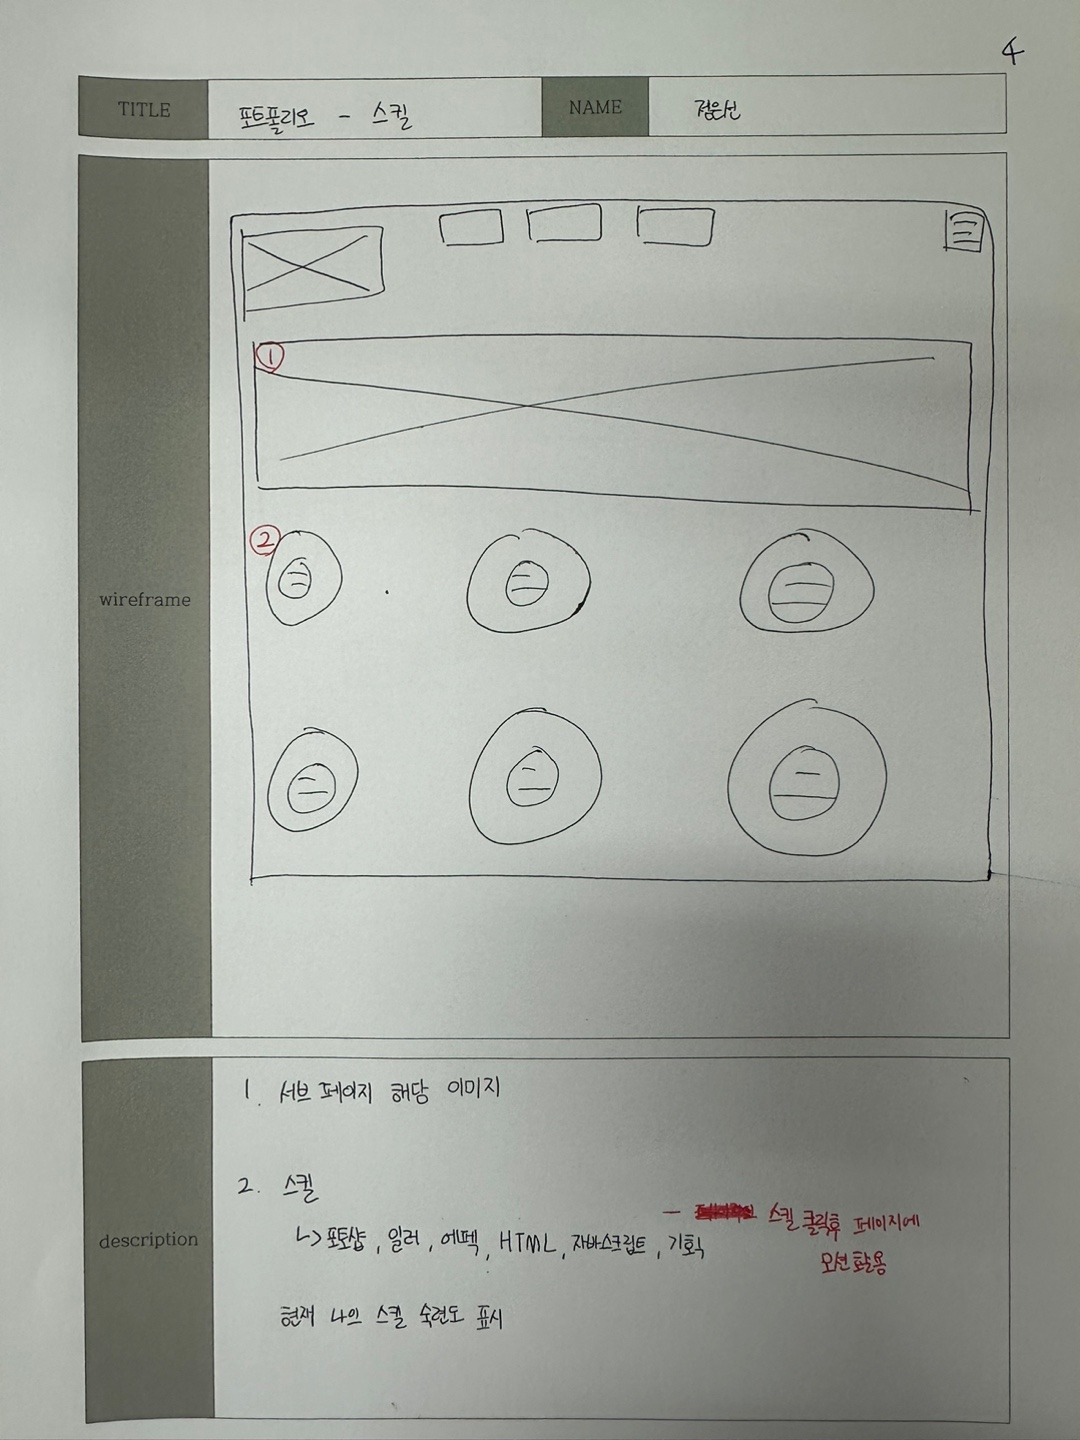 4
TITLE 포트폴리오 - 스킬 NAME 정은선
wireframe
①
②
description
1. 서브 페이지 해당 이미지
2. 스킬
↳ 포토샵, 일러, 에펙, HTML, 자바스크립트, 기획
- 스킬 클릭후 페이지에
모션 활용
현재 나의 스킬 숙련도 표시